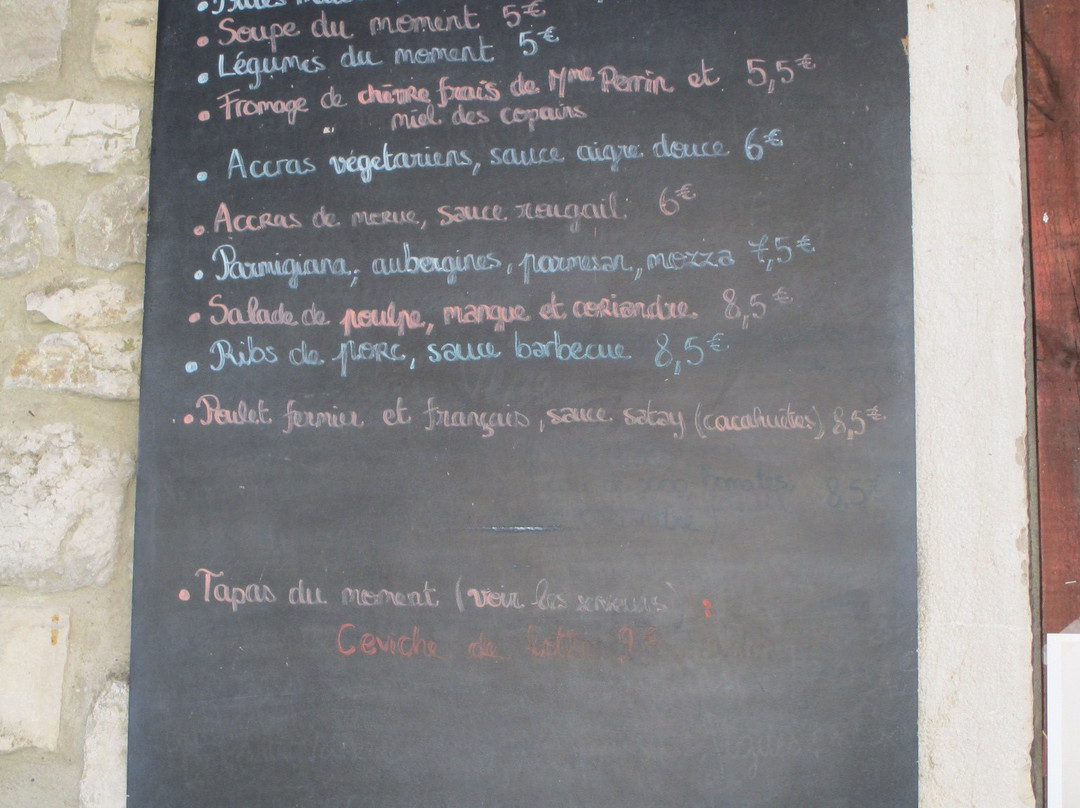 • Soupe du moment 5€
• Légumes du moment 5€
• Fromage de chèvre frais de Mme Perrin et 5,5€
miel des copains
• Accras végetariens, sauce aigre douce 6€
• Accras de morue, sauce rougail 6€
• Parmigiana, aubergines, parmesan, mozza 7,5€
• Salade de poulpe, mangue et coriandre 8,5€
• Ribs de porc, sauce barbecue 8,5€
• Poulet fermier et français, sauce satay (cacahuètes) 8,5€
tomates, 8,5€
• Tapas du moment (voir les serveurs) :
Ceviche de lotte 9€